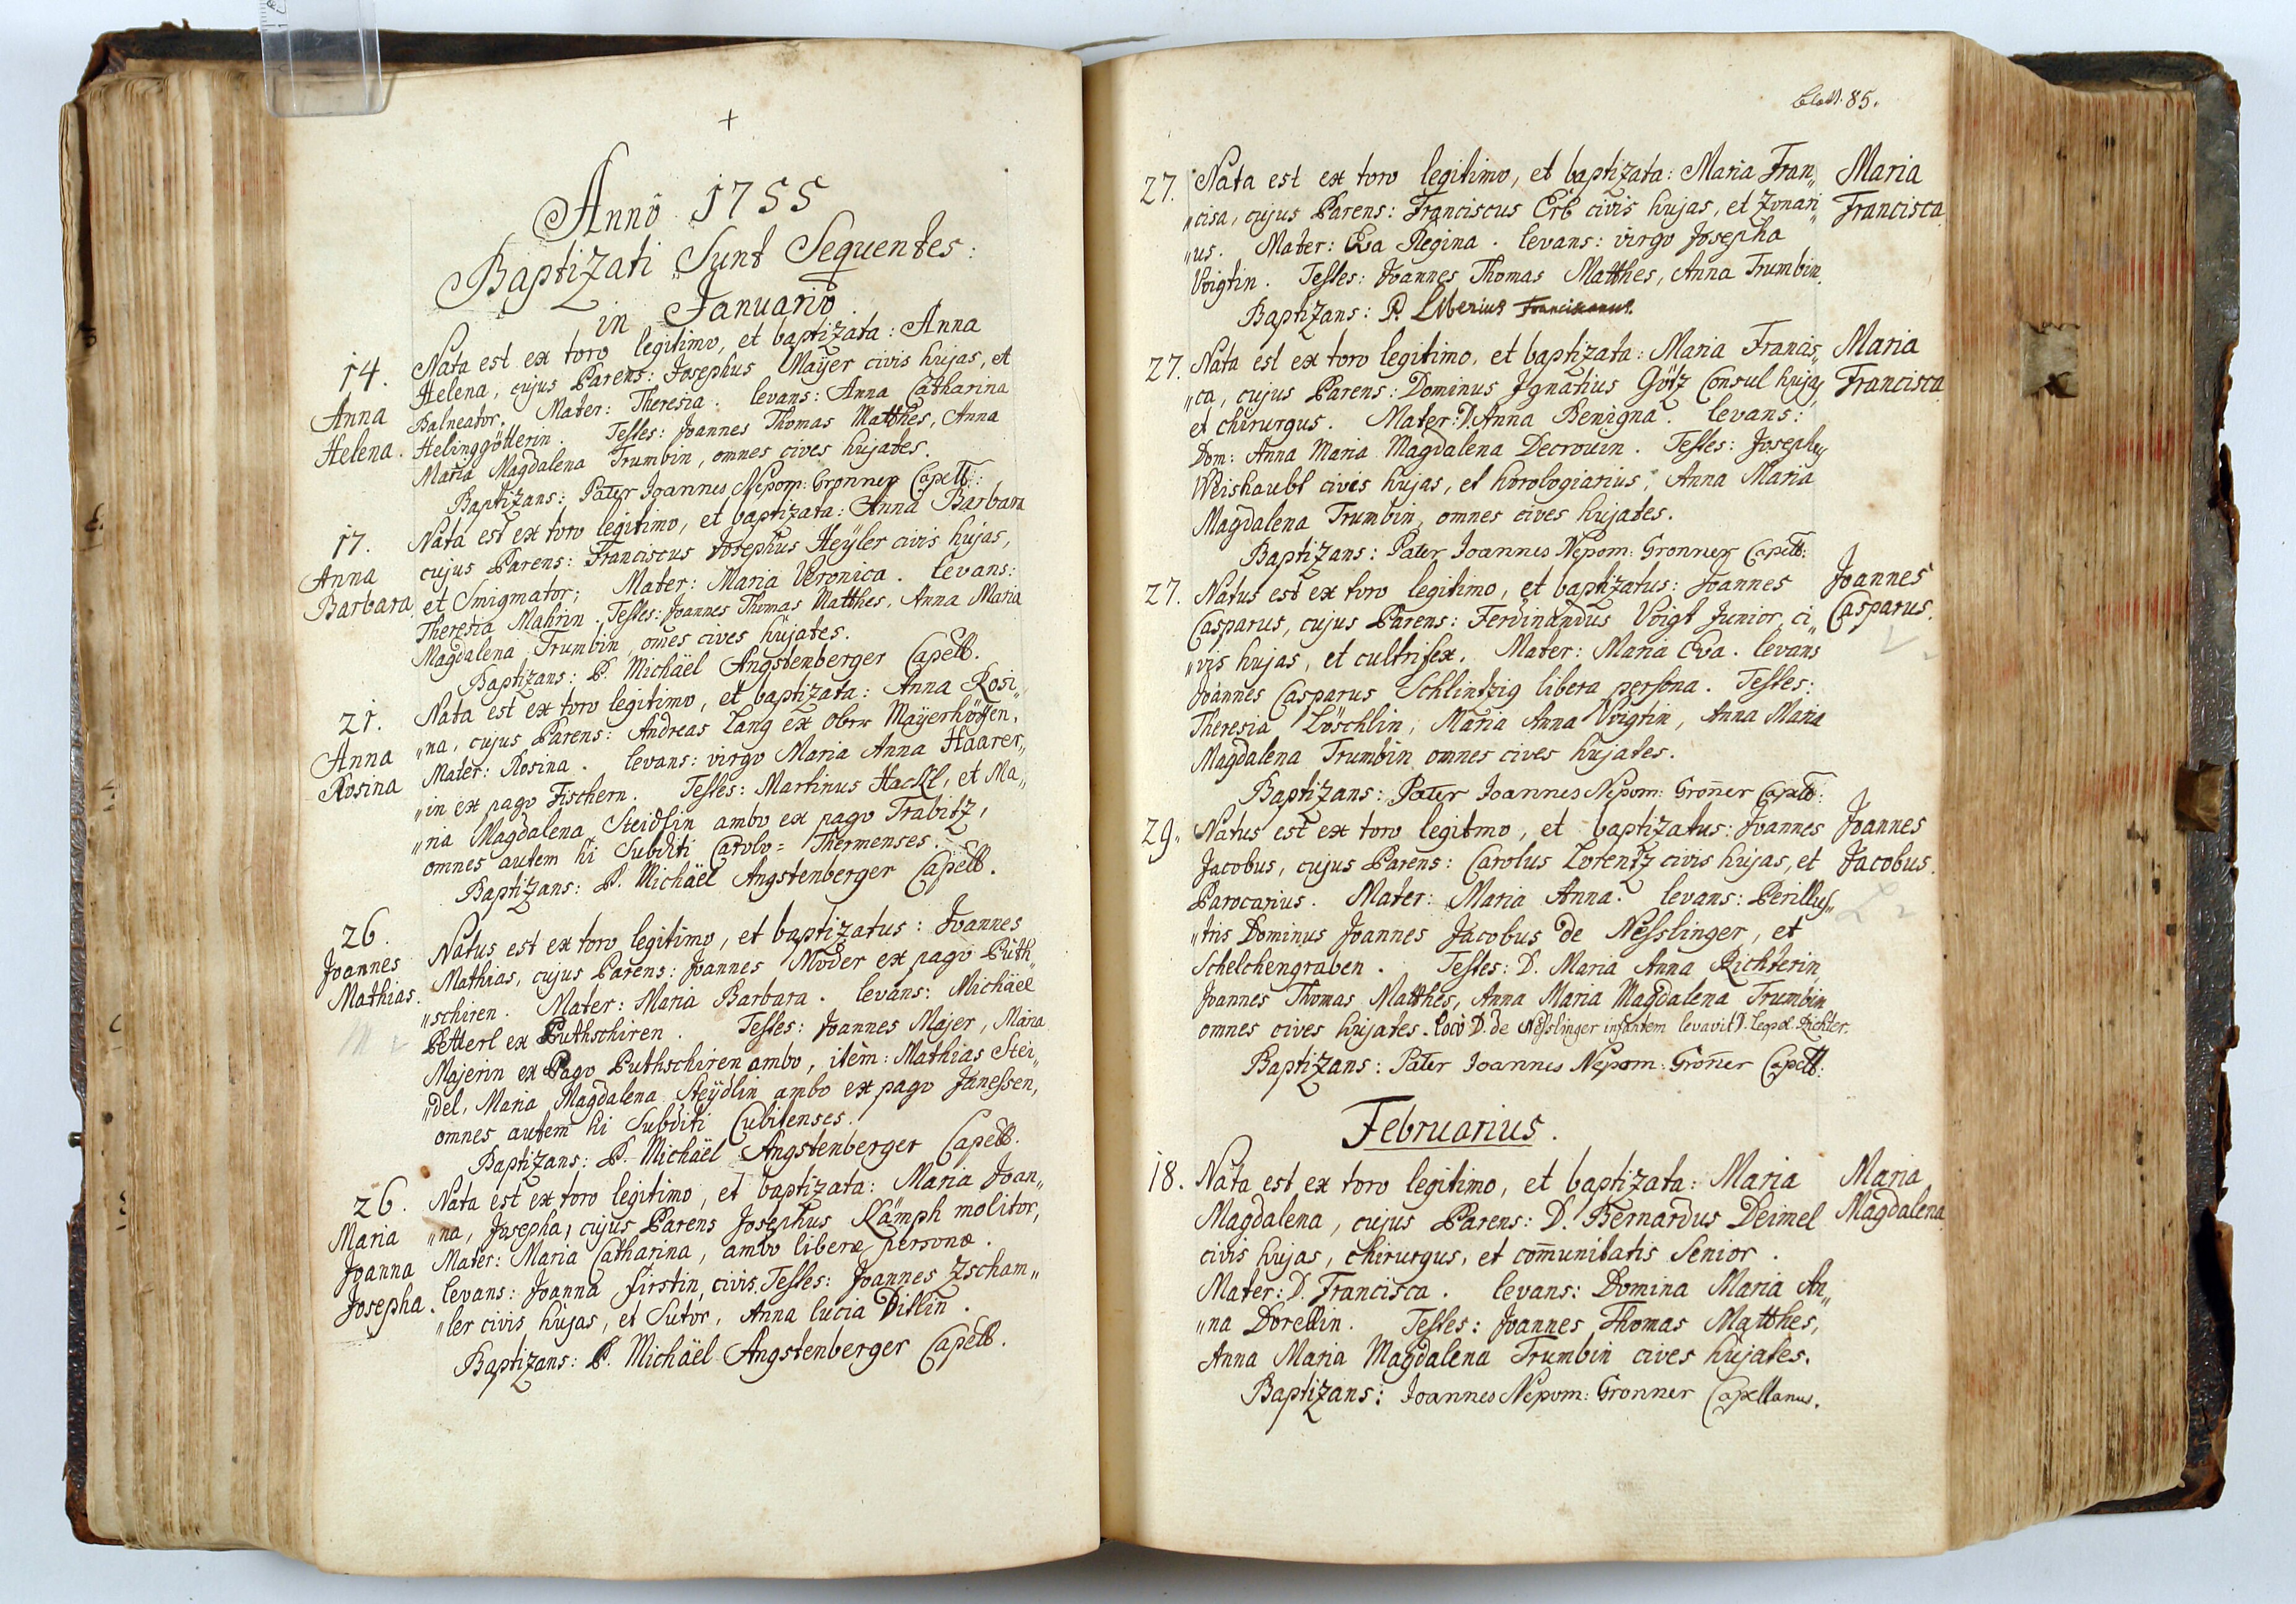 +
Annô 1755
Baptizati Sunt Sequentes:
in Januariô
14. Nata est ex toro legitimo, et baptizata: Anna
Helena, cujus Parens: Josephus Maÿer civis hujas, et
Anna Balneator. Mater: Theresia. levans: Anna Catharina
Helena. Helinggötterin. Testes: Joannes Thomas Matthes, Anna
Maria Magdalena Trumbin, omnes cives hujates.
Baptizans: Pater Joannes Nepom: Gronner Capell:
17. Nata est ex toro legitimo, et baptizata: Anna Barbara
Anna cujus Parens: Franciscus Josephus Heÿler civis hujas,
Barbara et Smigmator; Mater: Maria Veronica. levans:
Theresia Mahrin. Testes: Joannes Thomas Matthes, Anna Maria
Magdalena Trumbin, omes cives hujates.
Baptizans: P. Michäel Angstenberger Capell.
21. Nata est ex toro legitimo, et baptizata: Anna Rosi„
Anna „na, cujus Parens: Andreas Lang ex ober Maÿerhöffen.
Rosina Mater: Rosina. levans: virgo Maria Anna Haarer„
„in ex pago Fischern. Testes: Martinus Hackl, et Ma„
„ria Magdalena Steidlin ambo ex pago Trabitz,
omnes autem hi Subditi Carolo= Thermenses.
Baptizans: P. Michäel Angstenberger Capell.
26. Natus est ex toro legitimo, et baptizatus: Joannes
Joannes Mathias, cujus Parens: Joannes Moder ex pago Puth„
Mathias. „schiren. Mater: Maria Barbara. levans: Michäel
Petterl ex Puthschiren. Testes: Joannes Majer, Maria
Majerin ex Pago Puthschiren ambo, item: Mathias Stei„
„del, Maria Magdalena Steÿdlin ambo ex pago Janessen,
omnes autem hi Subditi Cubitenses.
Baptizans: P. Michäel Angstenberger Capell.
26. Nata est ex toro legitimo, et baptizata: Maria Joan„
Maria „na, Josepha, cujus Parens Josephus Kämph molitor,
Joanna Mater: Maria Catharina, ambo liberæ personæ.
Josepha. levans: Joanna Firstin, civis. Testes: Joannes Zscham„
„ler civis hujas, et Sutor, Anna Lucia Ditlin.
Baptizans: P. Michäel Angstenberger Capell.
Blatt. 85.
27. Nata est ex toro legitimo, et baptizata: Maria Fran„ Maria
„cisa, cujus Parens: Franciscus Erb civis hujas, et Zonari„ Francisca
„us. Mater: Eva Regina. levans: virgo Josepha
Voigtin. Testes: Joannes Thomas Matthes, Anna Trumbin.
Baptizans: P. Liberius Franciscanus.
27. Nata est ex toro legitimo, et baptizata: Maria Francis„ Maria
„ca, cujus Parens: Dominus Ignatius Götz Consul hujas, Francisca
et chirurgus. Mater: D. Anna Benigna. levans:
Dom: Anna Maria Magdalena Decrouin. Testes: Josephus
Weishaubt civis hujas, et horologiarius, Anna Maria
Magdalena Trumbin, omnes cives hujates.
Baptizans: Pater Joannes Nepom: Gronner Capell:
27. Natus est ex toro legitimo, et baptizatus: Joannes Joannes
Casparus, cujus Parens: Ferdinandus Voigt Junior, ci„ Casparus.
„vis hujas, et cultrifex. Mater: Maria Eva. levans
Joannes Casparus Schlintzig libera persona. Testes:
Theresia Löschlin, Maria Anna Voigtin, Anna Maria
Magdalena Trumbin omnes cives hujates.
Baptizans: Pater Joannes Nepom: Groner Capell:
29. Natus est ex toro legitmo, et baptizatus: Joannes Joannes
Jacobus, cujus Parens: Carolus Lorentz civis hujas, et Jacobus.
Parocarius. Mater: Maria Anna. levans: Perillus„
„tris Dominus Joannes Jacobus de Nesslinger, et
Schelchengraben. Testes: D. Maria Anna Richterin
Joannes Thomas Matthes, Anna Maria Magdalena Trumbin
omnes cives hujates. Locô D. de Nesslinger infantem levavit D. Leopol. Richter.
Baptizans: Pater Joannes Nepom: Groner Capell:
Februarius.
18. Nata est ex toro legitimo, et baptizata: Maria Maria
Magdalena, cujus Parens: D. Bernardus Deimel Magdalena
civis hujas, chirurgus, et com̄unitatis Senior.
Mater: D. Francisca. levans: Domina Maria An„
„na Dorellin. Testes: Joannes Thomas Matthes,
Anna Maria Magdalena Trumbin cives hujates.
Baptizans: Joannes Nepom: Gronner Capellanus.